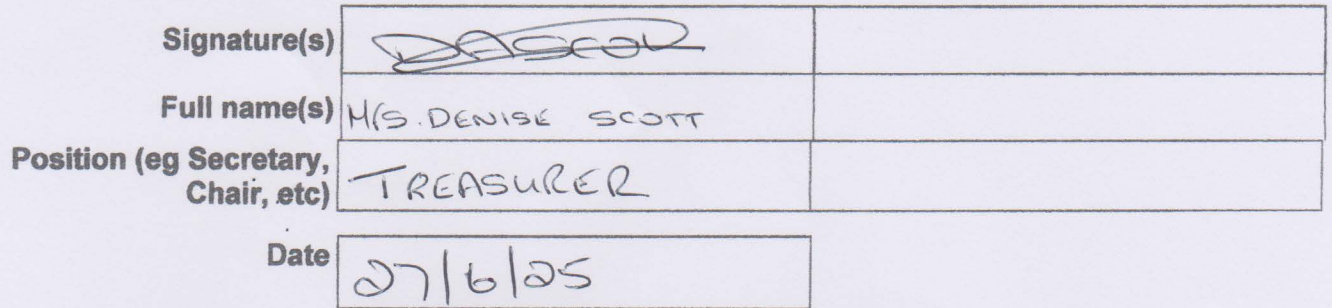 Signature(s) DASCOTT
Full name(s) M/S. DENISE SCOTT
Position (eg Secretary,
Chair, etc) TREASURER
Date 27/6/25